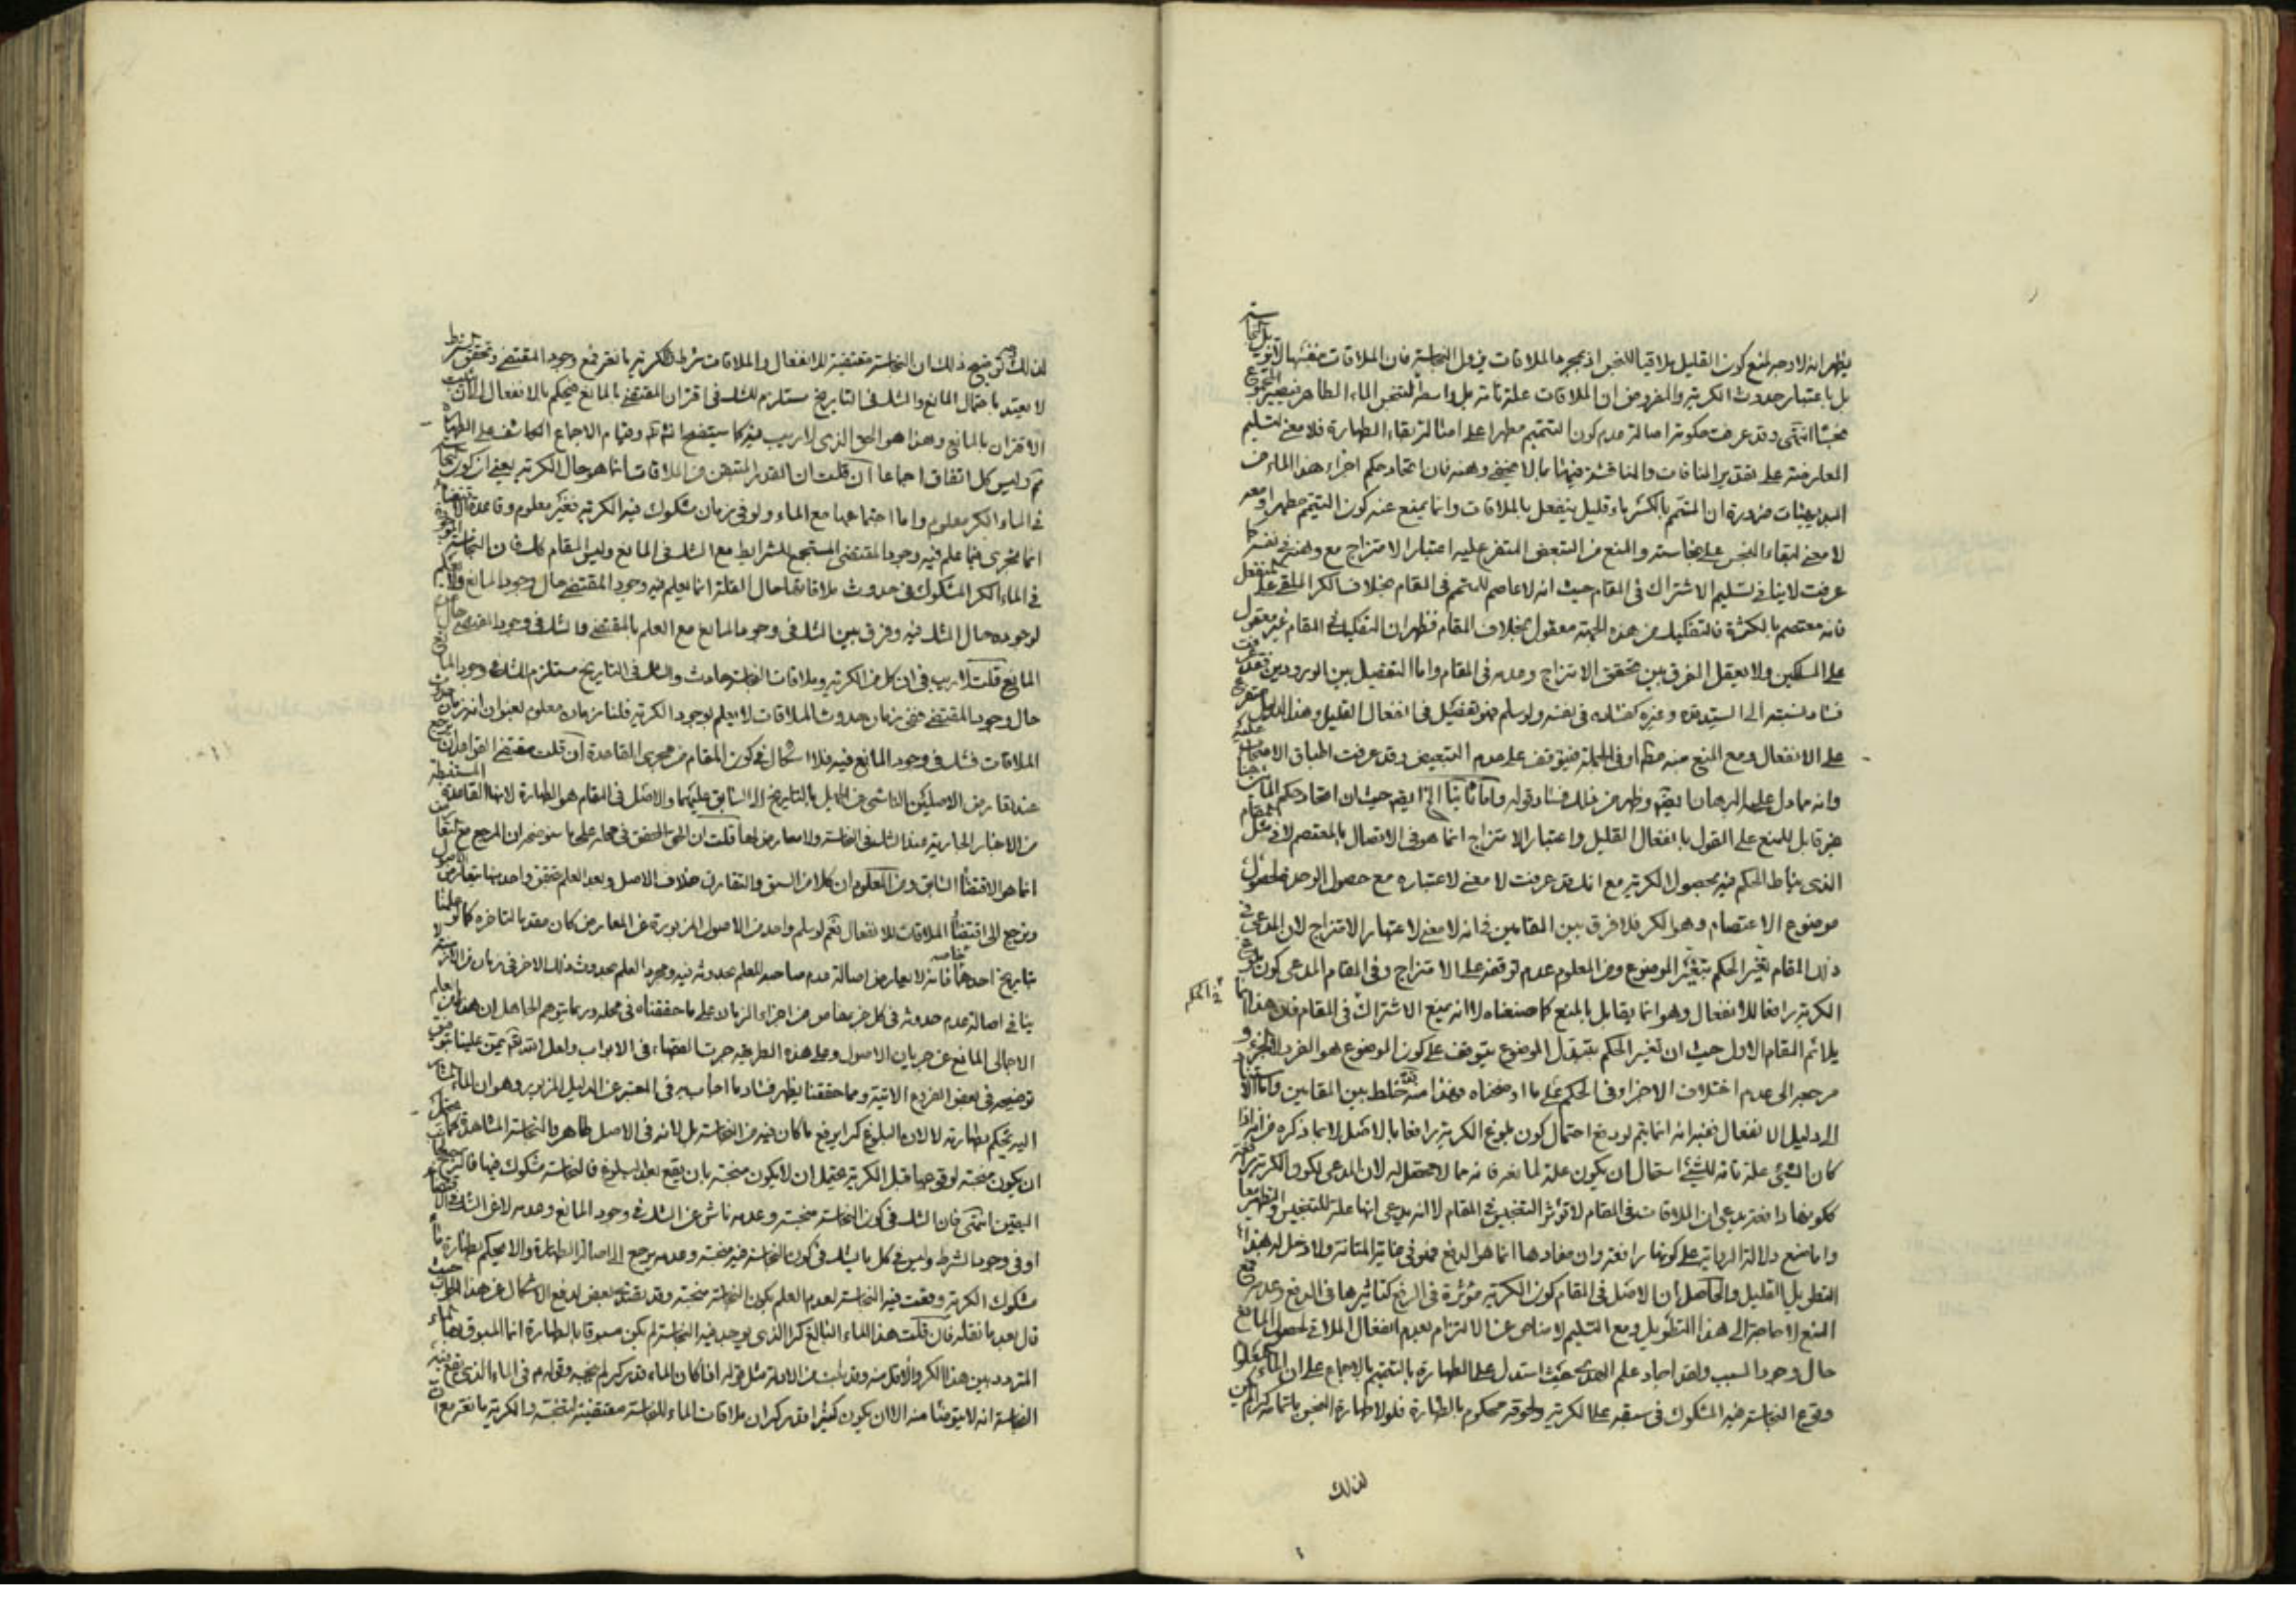 يظهر انه لا وجه لمنع كون القليل ملاقيا للنجس اذ بمجرد الملاقات يزول النجاسة فان الملاقات بنفسها لا تزيل النجاسة
بل باعتبار حدوث الكرية والمفروض ان الملاقات علة تامة بل واسطة لتنجس الماء الطاهر فيصير المجموع
نجسا انتهى وقد عرفت حكومة اصالة عدم كون التتميم مطهرا على امثال بقاء الطهارة فلا معنى لتسليم
المعارضة على تقدير المنافات والمناقشة فيها بما لا يخفى وهنه فان اتحاد حكم اجزاء هذا الماء من
البديهيات ضرورة ان المتمم بالكسر ماء قليل ينفعل بالملاقات وانما يمنع عنه كون التتميم مطهرا ومعه
لا معنى لبقاء النجس على نجاسته والمنع من التبعض المتفرع عليه اعتبار الامتزاج مع وهنه في نفسه كما
عرفت لا ينافي تسليم الاشتراك في المقام حيث انه لا عاصم للمتمم في المقام بخلاف الكر الملقى على المنفعل
فانه معتصم بالكثرة فالتفكيك من هذه الجهة معقول بخلاف المقام فظهر ان التفكيك في المقام غير معقول
على المسلكين ولا يعقل الفرق بين تحقق الامتزاج وعدمه في المقام واما التفصيل بين الورودين فقد عرفت
فساد نسبته الى السيد وغيره كفساده في نفسه ولو سلم فهو تفصيل في انفعال القليل وهذا الدليل متفرع
على الانفعال ومع المنع منه مطلقا او في الجملة فيتوقف على عدم التبعيض وقد عرفت اطباق الاصحاب عليه
وانه مما دل عليه البرهان ايضا وظهر من ذلك فساد قوله واما ثانيا الخ ايضا حيث ان اتحاد حكم الماء
غير قابل للمنع على القول بانفعال القليل واعتبار الامتزاج انما هو في الاتصال بالمعتصم لا في مثل المقام
الذي يناط الحكم فيه بحصول الكرية مع انك قد عرفت لا معنى لاعتباره مع حصول الوحدة لحصول
موضوع الاعتصام وهو الكر فلا فرق بين المقامين فانه لا معنى لاعتبار الامتزاج لان المدعى في
ذلك المقام تغير الحكم بتغير الموضوع ومن المعلوم عدم توقفه على الامتزاج وفي المقام المدعى كون بلوغ
في الحكم
الكرية رافعا للانفعال وهو انما يقابل بالمنع كما صنعناه لا انه يمنع الاشتراك في المقام فان هذا انما
يلائم المقام الاول حيث ان تغير الحكم بتبدل الموضوع يتوقف على كون الموضوع هو الفرد لا الجزء و
مرجعه الى عدم اختلاف الاجزاء في الحكم على ما اوضحناه وهذا منه خلط بين المقامين
الى دليل الانفعال ففيه انه انما يتم لو دفع احتمال كون بلوغ الكرية رافعا بالاصل لا بما ذكره من انه اذا
كان الشيء علة تامة للشيء استحال ان يكون علة لمانعه فانه مما لا محصل له لان المدعى لكون الكرية رافعة
ككونها دافعة يدعي ان الملاقات في المقام لا تؤثر التنجيس في المقام لا انه يدعي انها علة للتنجيس والتطهير معا
واما منع دلالة الرواية على كونها رافعة وان مفادها انما هو الدفع فهو في غاية المتانة ولا دخل له بهذا
التطويل القليل والحاصل ان الاصل في المقام كون الكرية مؤثرة في الرفع كتاثيرها في الدفع وعدمه ومع
المنع لا حاجة الى هذا التطويل ومع التسليم لا مناص عن الالتزام بعدم انفعال الملاقي لحصول المانع
حال وجود السبب ولقد اجاد علم الهدى حيث استدل على الطهارة بالتتميم بالاجماع على ان الماء المعلوم
وقوع النجاسة فيه المشكوك في سبقه على الكرية ولحوقه محكوم بالطهارة فلولا طهارة النجس باتمامه كرا لم يكن
لذلك
لذلك وتوضيح ذلك ان النجاسة مقتضية للانفعال والملاقات شرط والكرية مانعة فمع وجود المقتضي وتحقق الشرط
لا يعتد باحتمال المانع والشك في التاريخ مستلزم للشك في اقتران المقتضي بالمانع فيحكم بالانفعال الا ان يثبت
الاقتران بالمانع وهذا هو الحق الذي لا ريب فيه كما سيتضح انشاء الله وقيام الاجماع الكاشف على الطهارة
ثم وليس كل اتفاق اجماعا فان قلت ان القدر المتيقن من الملاقات انما هو حال الكرية يعني ان كون النجاسة
في الماء الكر معلوم واما اجتماعها مع الماء ولو في زمان مشكوك فيه الكرية فغير معلوم وقاعدة الاقتضاء
انما تجري فيما علم فيه وجود المقتضي المستجمع للشرايط مع الشك في المانع وليس المقام كك فان النجاسة الموجودة
في الماء الكر المشكوك في حدوث ملاقاتها حال القلة انما يعلم فيه وجود المقتضي حال وجود المانع ولا علم
لوجوده حال الشك فيه وفرق بين الشك في وجود المانع مع العلم بالمقتضي والشك في وجود المقتضي حال
المانع قلت لا ريب في ان كلا من الكرية وملاقات النجاسة حادث والشك في التاريخ مستلزم للشك في وجود المانع
حال وجود المقتضي ففي زمان حدوث الملاقات لا يعلم بوجود الكرية فلنا زمان معلوم بعنوان انه زمان حدوث
الملاقات فشك في وجود المانع فيه فلا اشكال في كون المقام من مجرى القاعدة فان قلت مقتضى القواعد ان يرجع
عند تعارض الاصلين الناشي من الجهل بالتاريخ الى السابق عليهما والاصل في المقام هو الطهارة لانها القاعدة المستنبطة
من الاخبار الجارية عند الشك في النجاسة ولا معارض لها قلت ان الحق المحقق في محله على ما سنوضحه ان المرجع مع التعارض
انما هو الاقتضاء السابق ومن المعلوم ان كلا من السبق والتقارن خلاف الاصل وبعد العلم بتحقق واحد منها يتعارض الاصول
ويرجع الى اقتضاء الملاقات للانفعال نعم لو سلم واحد من الاصول المزبورة عن المعارض كان مقدما لتاخره كما لو علمنا
بتاريخ احدهما خاصة فانه لا يعارض اصالة عدم صاحبه العلم بحدوثه فيه ومجرد العلم بحدوث ذلك الاخر في زمان من الازمنة لا
ينافي اصالة عدم حدوثه في كل جزء خاص من اجزاء الزمان على ما حققناه في محله وربما يتوهم الجاهل ان هذا من العلم
الاجمالي المانع عن جريان الاصول وعلى هذه الطريقة جرت الفقهاء في الابواب ولعل الله تعالى يمن علينا بتوفيق
توضيحه في بعض الفروع الاتية ومما حققنا يظهر فساد ما اجاب به في المعتبر عن الدليل المزبور وهو ان الماء المشار
اليه يحكم بطهارته لا لان البلوغ كرا يرفع ما كان فيه من النجاسة بل لانه في الاصل طاهر والنجاسة المشاهدة كما يحتمل
ان يكون منجسة لوقوعها قبل الكرية يحتمل ان لا يكون منجسة بان يقع بعد البلوغ فالنجاسة مشكوك فيها فالترجيح لجانب
اليقين انتهى فان الشك في كون النجاسة منجسة وعدمه ناش عن الشك في وجود المانع وعدمه لا عن الشك في الاقتضاء
او في وجود الشرط وليس في كل ما يشك في كون النجاسة فيه منجسة وعدمه يرجع الى اصالة الطهارة والا لحكم بطهارة ماء
مشكوك الكرية وقعت فيه النجاسة لعدم العلم بكون النجاسة منجسة وقد يتصدى بعض لدفع الاشكال عن هذا الجواب حيث
قال بعد ما نقله فان قلت هذا الماء البالغ كرا الذي يوجد فيه النجاسة لم يكن مسبوقا بالطهارة انما المسبوق بها الماء
المتردد بين هذا الكر والاقل منه وقد ثبت من الادلة مثل قوله اذا كان الماء قدر كر لم ينجسه وقوله م في الماء الذي تقع فيه
النجاسة انه لا يتوضأ منه الا ان يكون كثيرا قدر كر ان ملاقات الماء للنجاسة مقتضية لتنجسه والكرية مانعة مع ان